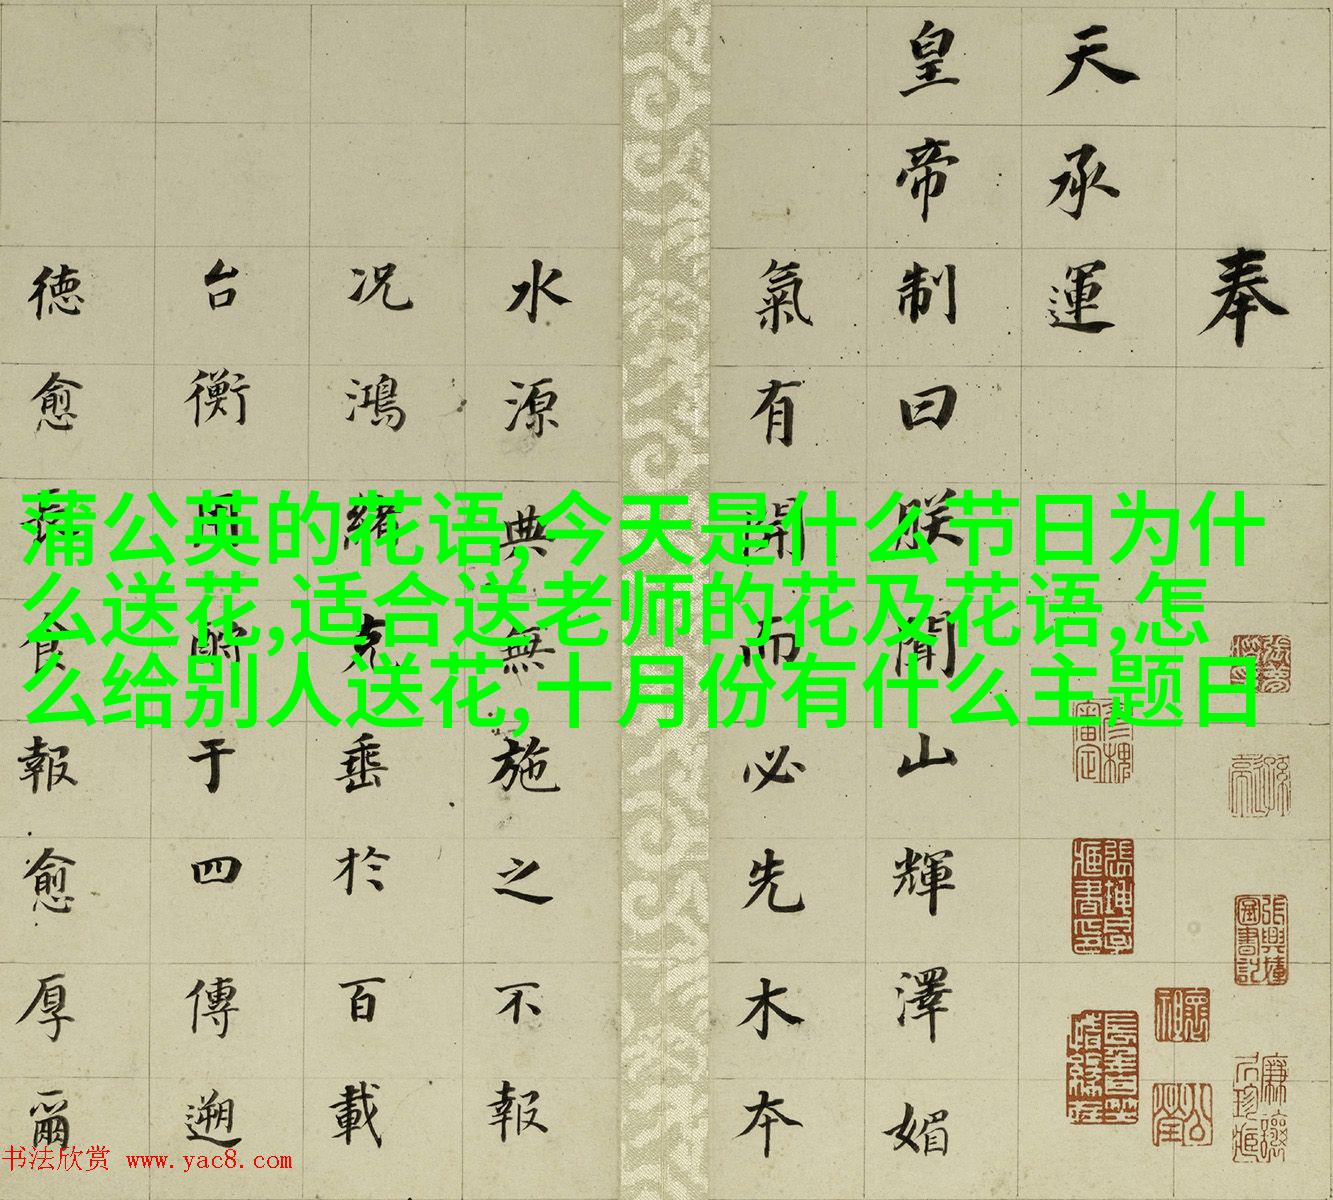 奉
天承運
皇帝制曰朕聞山輝澤媚
氣有開而必先木本
水源典無施之不報
况鴻緒克垂於百載
台衡用酬于四傳遡
德愈報愈厚爾
蒲公英的花语,今天是什么节日为什
么送花,适合送老师的花及花语,怎
么给别人送花,十月份有什么主题日
书法欣赏 www.yac8.com